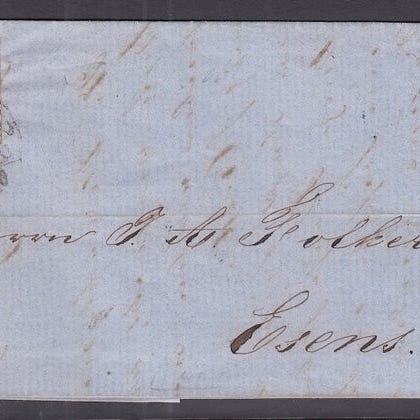 rrn J. A. Folker
Esens.